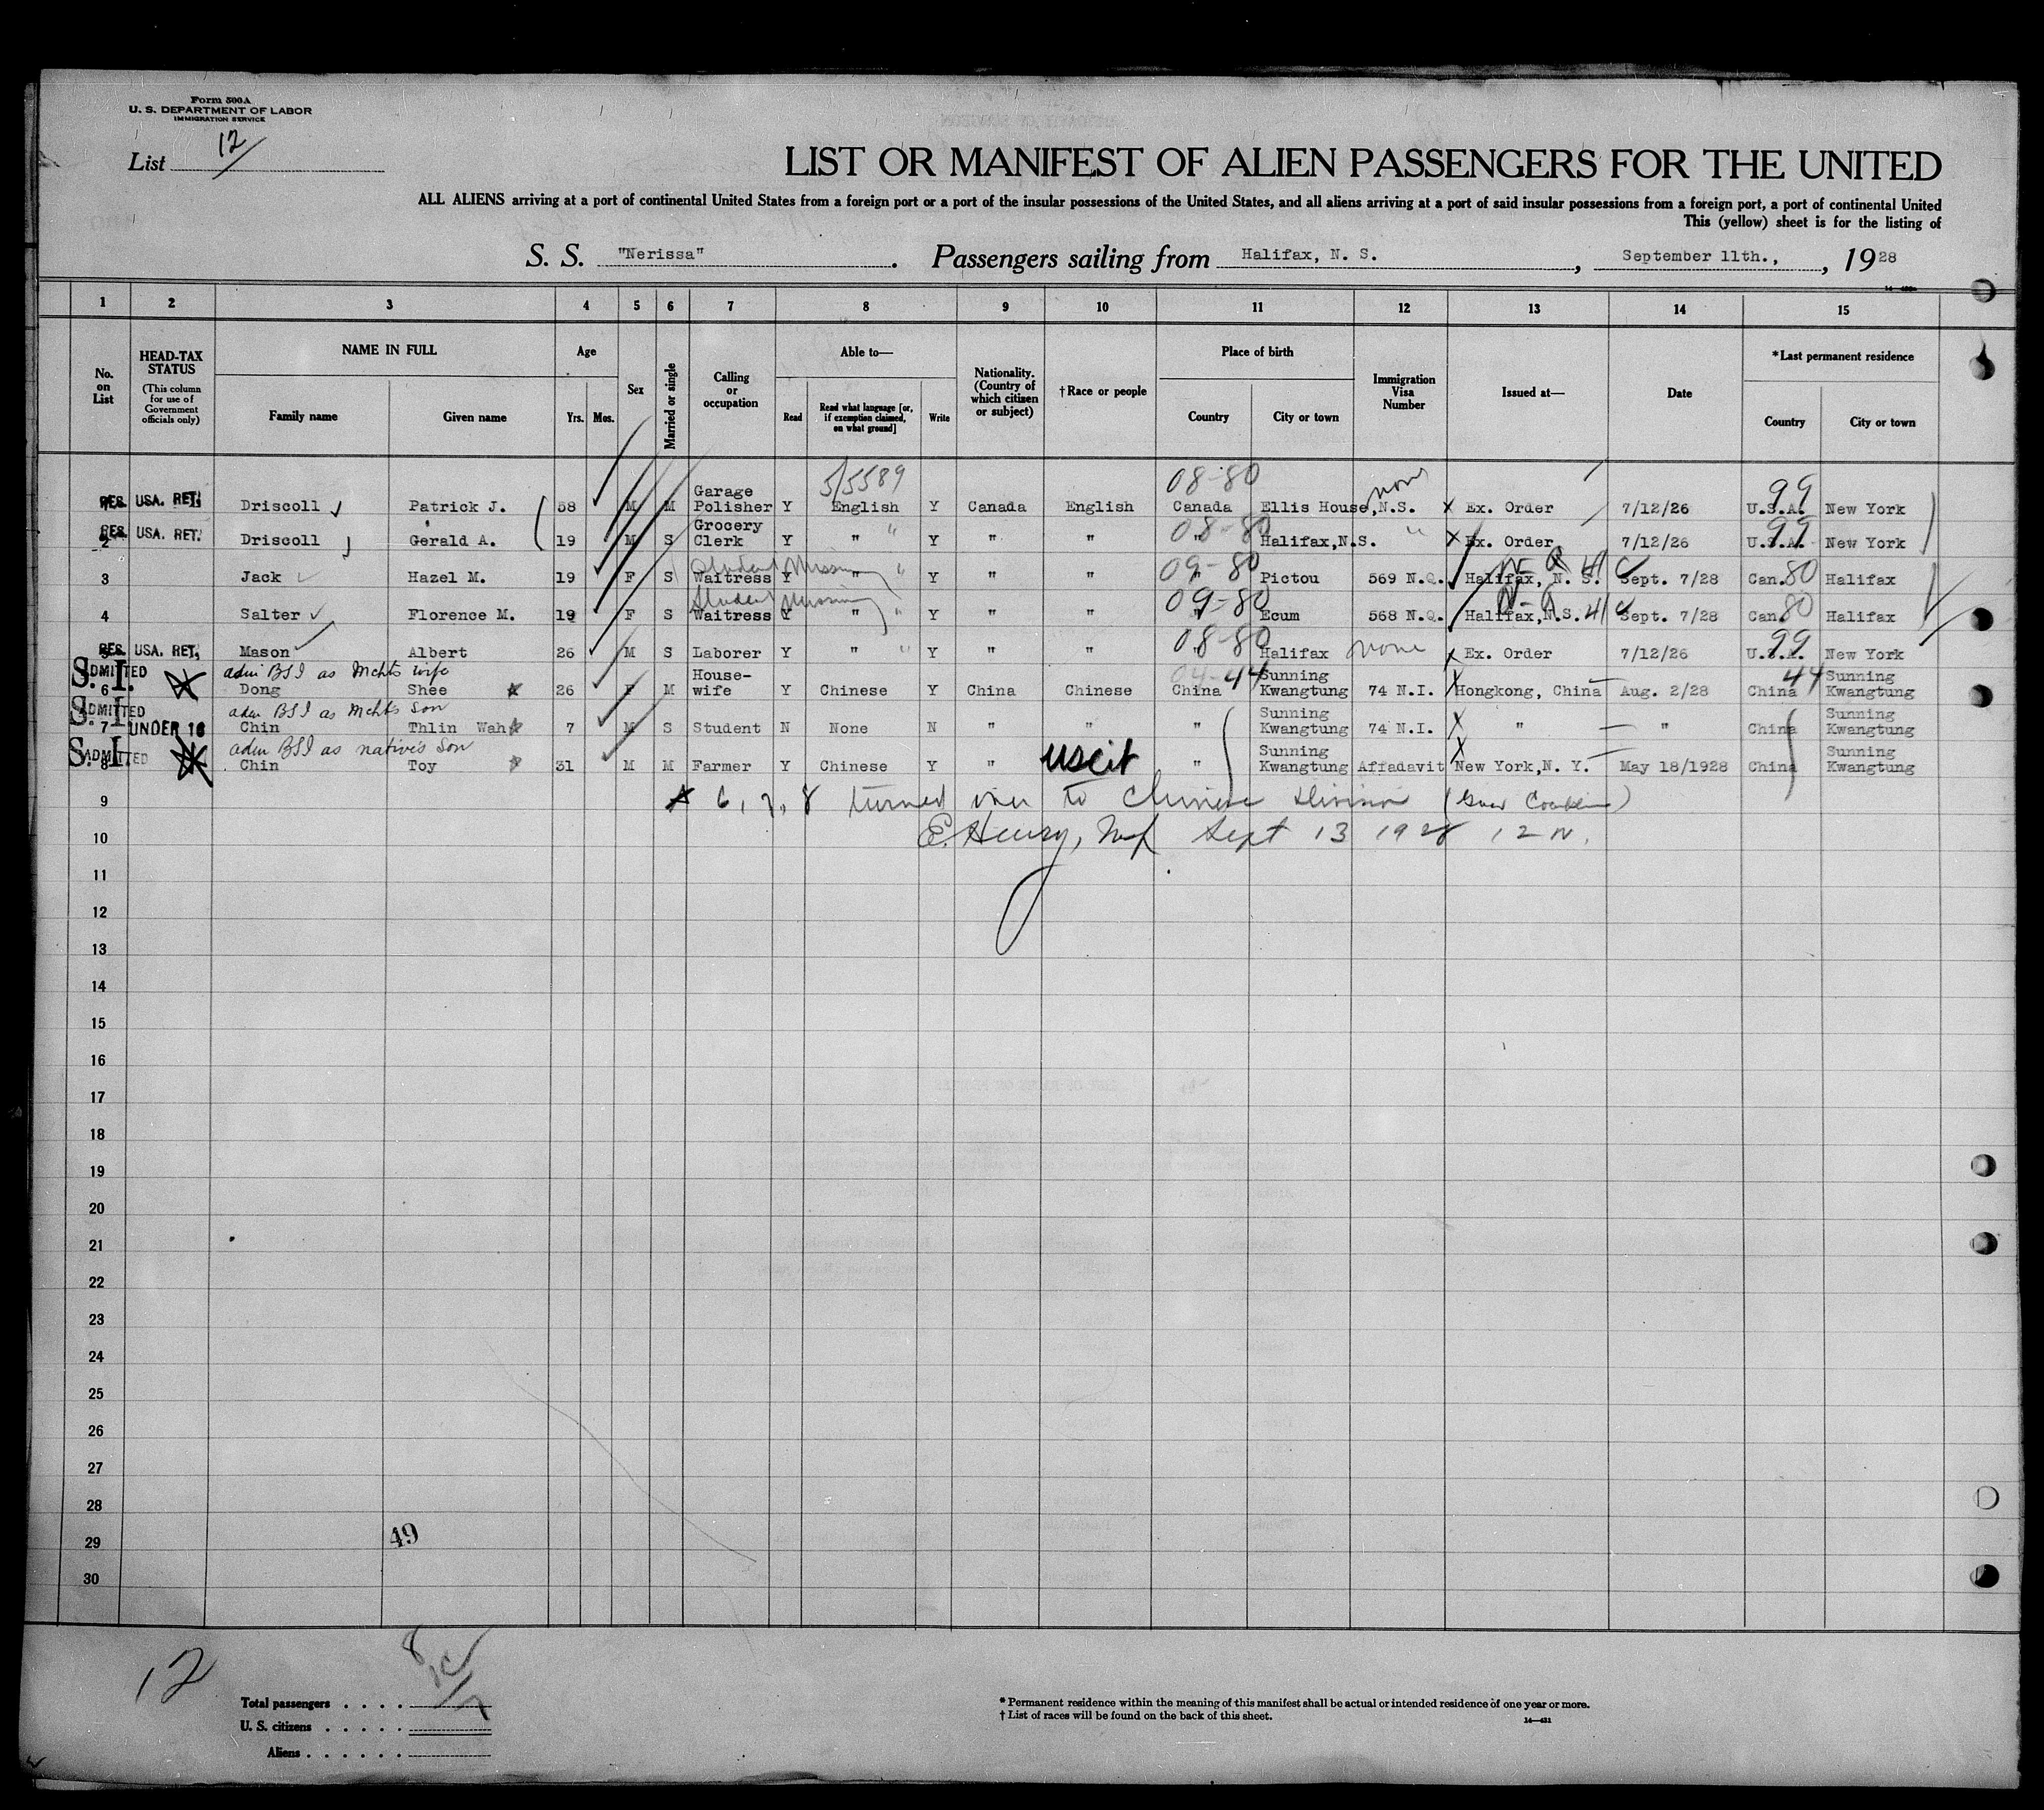 Form 500A
U. S. DEPARTMENT OF LABOR
IMMIGRATION SERVICE
List 12
LIST OR MANIFEST OF ALIEN PASSENGERS FOR THE UNITED
ALL ALIENS arriving at a port of continental United States from a foreign port or a port of the insular possessions of the United States, and all aliens arriving at a port of said insular possessions from a foreign port, a port of continental United
This (yellow) sheet is for the listing of
S. S. "Nerissa". Passengers sailing from Halifax, N. S., September 11th., , 1928
1 2 3 4 5 6 7 8 9 10 11 12 13 14 15
No. on List
HEAD-TAX STATUS (This column for use of Government officials only)
NAME IN FULL
Family name Given name
Age
Yrs. Mos.
Sex
Married or single
Calling or occupation
Able to—
Read Read what language [or, if exemption claimed, on what ground] Write
Nationality. (Country of which citizen or subject)
†Race or people
Place of birth
Country City or town
Immigration Visa Number
Issued at—
Date
*Last permanent residence
Country City or town
5/5589 08-80 none 99
RES. USA. RET. Driscoll Patrick J. 58 M M Garage Polisher Y English Y Canada English Canada Ellis House, N.S. X Ex. Order 7/12/26 U.S.A. New York
08-80 " 99
RES. USA. RET. 2 Driscoll Gerald A. 19 M S Grocery Clerk Y " " Y " " " Halifax,N.S. X Ex. Order 7/12/26 U.S.A. New York
Student Missing 09-80 80
3 Jack Hazel M. 19 F S Waitress Y " " Y " " " Pictou 569 N.Q. Halifax, N. S. Sept. 7/28 Can. Halifax
Student Missing 09-80 80
4 Salter Florence M. 19 F S Waitress Y " " Y " " " Ecum 568 N.Q. Halifax,N.S. Sept. 7/28 Can. Halifax
08-80 none 99
RES. USA. RET. 5 Mason Albert 26 M S Laborer Y " " Y " " " Halifax X Ex. Order 7/12/26 U.S.A. New York
ADMITTED S. I. adm BSI as Mchts wife 04-44 44
6 Dong Shee 26 F M House-wife Y Chinese Y China Chinese China Sunning Kwangtung 74 N.I. X Hongkong, China Aug. 2/28 China Sunning Kwangtung
ADMITTED S. I. adm BSI as Mchts Son
7 UNDER 16 Chin Thlin Wah 7 M S Student N None N " " " Sunning Kwangtung 74 N.I. X " — " China Sunning Kwangtung
ADMITTED S. I. adm BSI as native's Son
8 Chin Toy 31 M M Farmer Y Chinese Y " uscit " Sunning Kwangtung Affadavit X New York, N. Y. May 18/1928 China Sunning Kwangtung
9 6, 7, 8 turned over to Chinese Division
10 E. Henry, Sept 13 1928 12 N.
11
12
13
14
15
16
17
18
19
20
21
22
23
24
25
26
27
28
29 49
30
12
8
Total passengers . . . .
U. S. citizens . . . . .
Aliens . . . . . .
* Permanent residence within the meaning of this manifest shall be actual or intended residence of one year or more.
† List of races will be found on the back of this sheet.
14—431